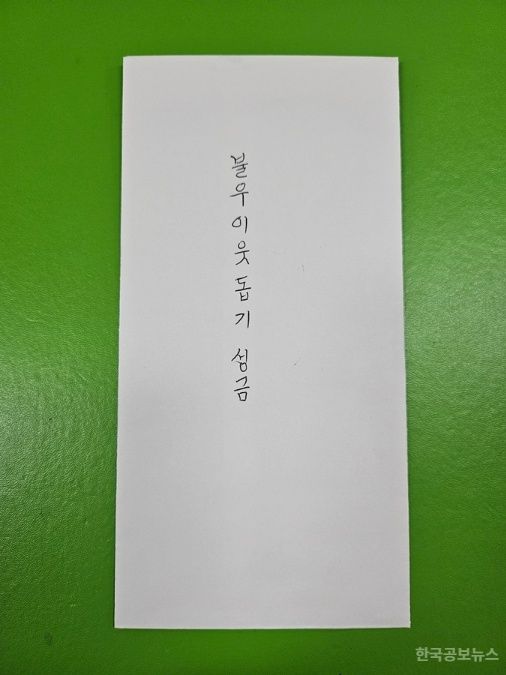 불우이웃돕기 성금
한국공보뉴스